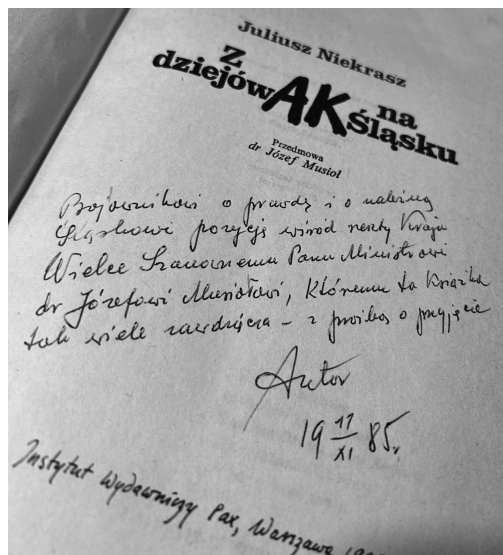 Juliusz Niekrasz
Z
dziejów AK na
Śląsku
Przedmowa
dr Józef Musioł
Bojownikowi o prawdę i o należną
Śląskowi pozycję wśród reszty Kraju
Wielce Szanownemu Panu Ministrowi
dr Józefowi Musiołowi, któremu ta Książka
tak wiele zawdzięcza – z prośbą o przyjęcie
Autor
19 17/XI 85r.
Instytut Wydawniczy Pax, Warszawa